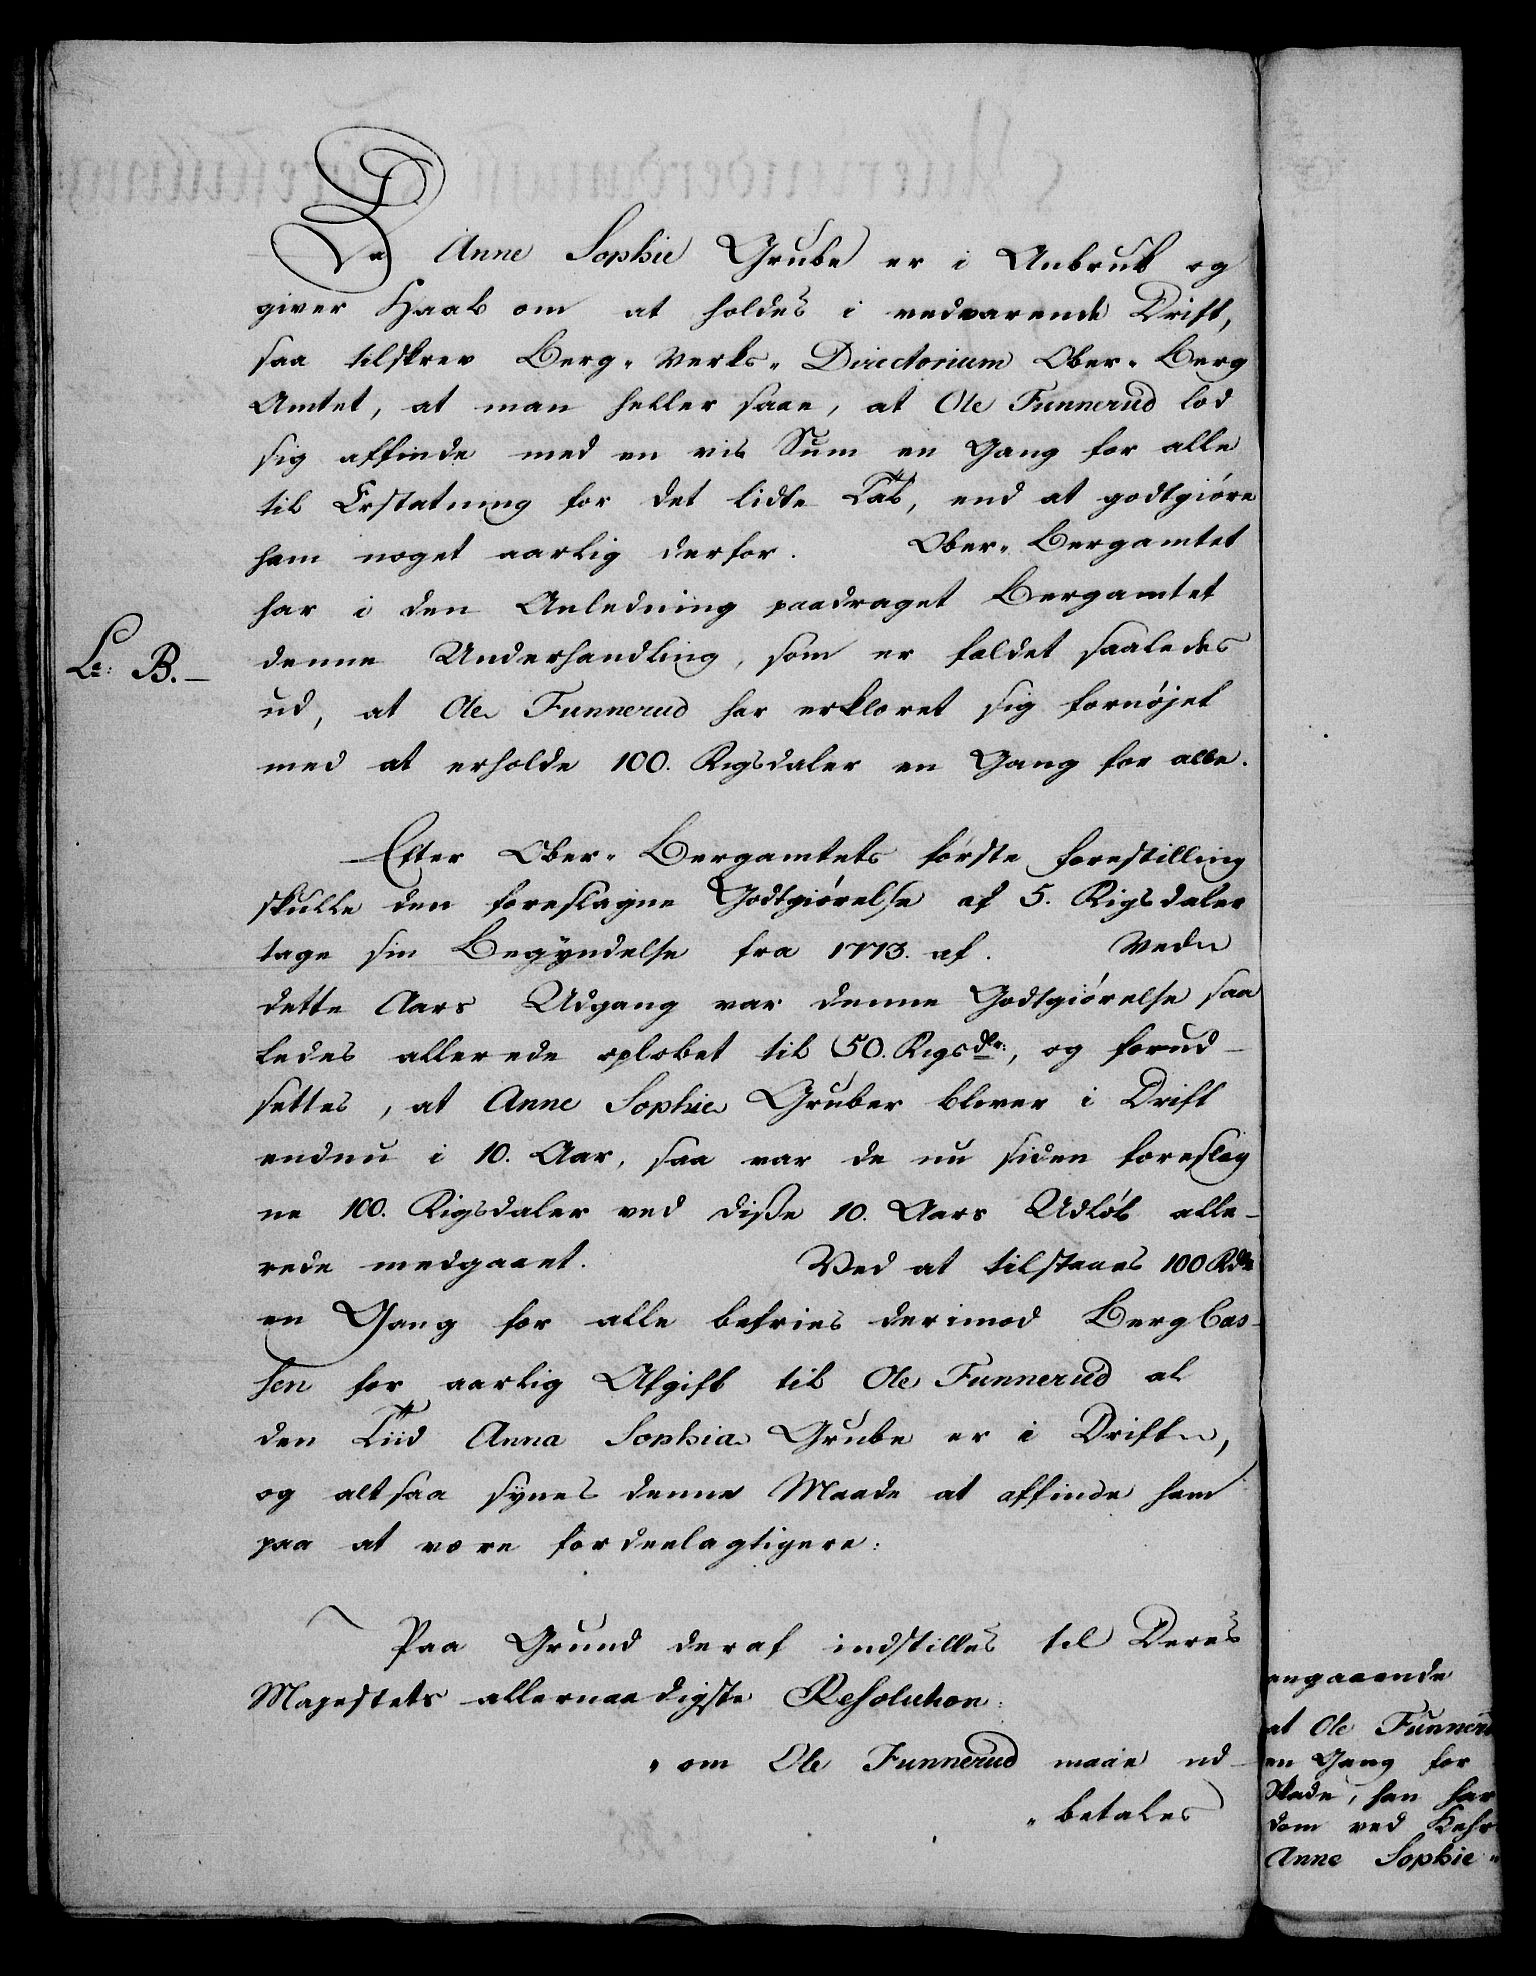 Da Anne Sophie Grube er i Anbrud og
giver Haab om at holdes i vedvarende Drift,
saa tilskrev Berg-Verks-Directorium Ober-Berg
Amtet, at man heller saae, at Ole Funnerud lod
sig affinde med en vis Sum en Gang for alle
til Erstatning for det lidte Tab, end at godtgiøre
ham noget aarlig derfor. Ober-Bergamtet
har i den Anledning paadraget Bergamtet
Lr: B.- denne Underhandling, som er faldet saaledes
ud, at Ole Funnerud har erklæret sig fornøjet
med at erholde 100. Rigsdaler en Gang for alle.
Efter Ober-Bergamtets første Forestilling
skulle den foreslagne Godtgiørelse af 5. Rigsdaler
tage sin Begyndelse fra 1773. af. Ved
dette Aars Udgang var denne Godtgiørelse saa
ledes allerede opløbet til 50. Rigsdlr:, og forud-
settes, at Anne Sophie Gruber bliver i Drift
endnu i 10. Aar, saa var de nu siden foreslag
ne 100. Rigsdaler ved disse 10. Aars Udløb alle-
rede medgaaet. Ved at tilstaaes 100 Rdlr
en Gang for alle befries derimod BergCas-
sen for aarlig Afgift til Ole Funnerud al
den Tiid Anna Sophia Grube er i Drift,
og altsaa synes denne Maade at affinde ham
paa at være fordeelagtigere.
Paa Grund deraf indstilles til Deres
Majestets allernaadigste Resolution:
"om Ole Funnerud maae ud-
"betales
angaaende
at Ole Funneru
en Gang for
Skade, han har
dom ved
Anne Sophie